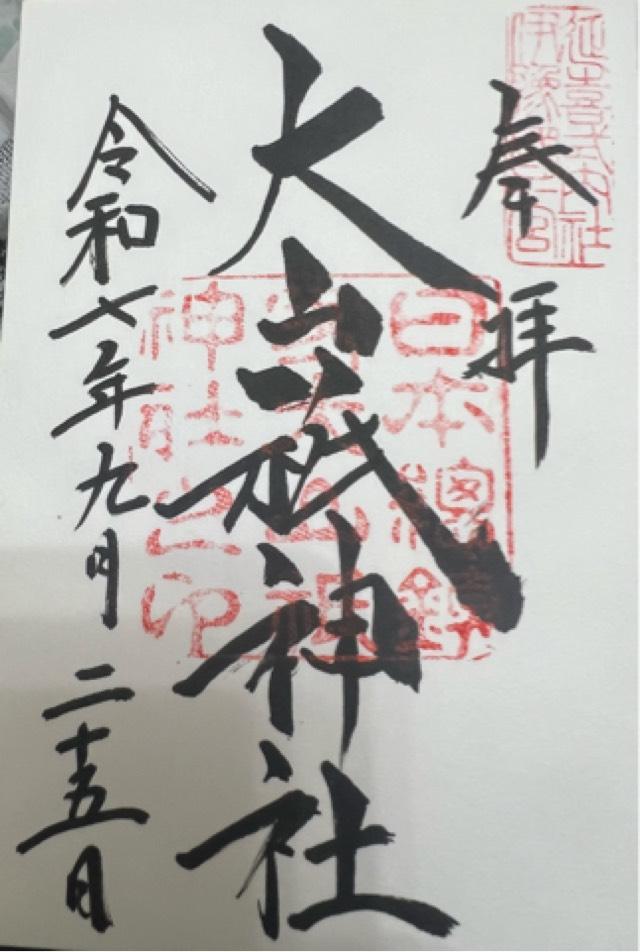 延喜式内社
伊豫國一宮
奉拝
日本總鎮
大山祇神社
神社之印
令和七年九月二十五日